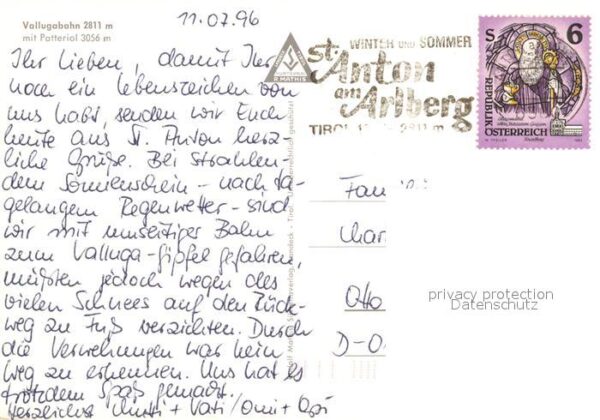 Vallugabahn 2811 m
mit Patteriol 3056 m
11.07.96
Ihr Lieben, damit Ihr
noch ein Lebenszeichen von
uns habt, senden wir Euch
heute aus St. Anton herz-
liche Grüße. Bei Strahlen-
dem Sonnenschein - nach ta-
gelangem Regenwetter - sind
wir mit umseitiger Bahn
zum Valluga-Gipfel gefahren,
mußten jedoch wegen des
vielen Schnees auf den Rück-
weg zu Fuß verzichten. Durch
die Verwehungen war kein
Weg zu erkennen. Uns hat es
trotzdem Spaß gemacht.
Herzlichst + Vati / Omi + Opi
R. MATHIS
WINTER UND SOMMER
St. Anton
am Arlberg
TIROL 2811 m
S 6
REPUBLIK
ÖSTERREICH
Fam
Char
Otto
D-O
privacy protection
Datenschutz